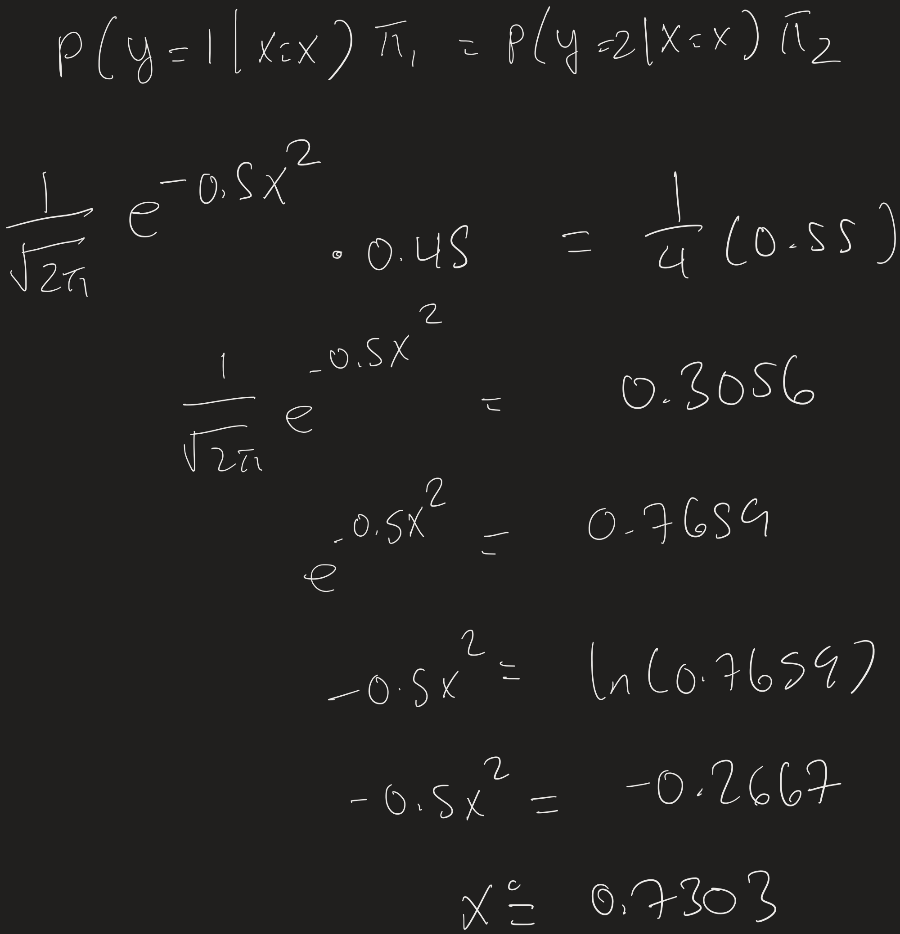 P(y=1|x=x) π₁ = P(y=2|x=x) π₂
1/√2π e^-0.5x² · 0.45 = 1/4 (0.55)
1/√2π e^-0.5x² = 0.3056
e^-0.5x² = 0.7659
-0.5x² = ln(0.7659)
-0.5x² = -0.2667
x = 0.7303